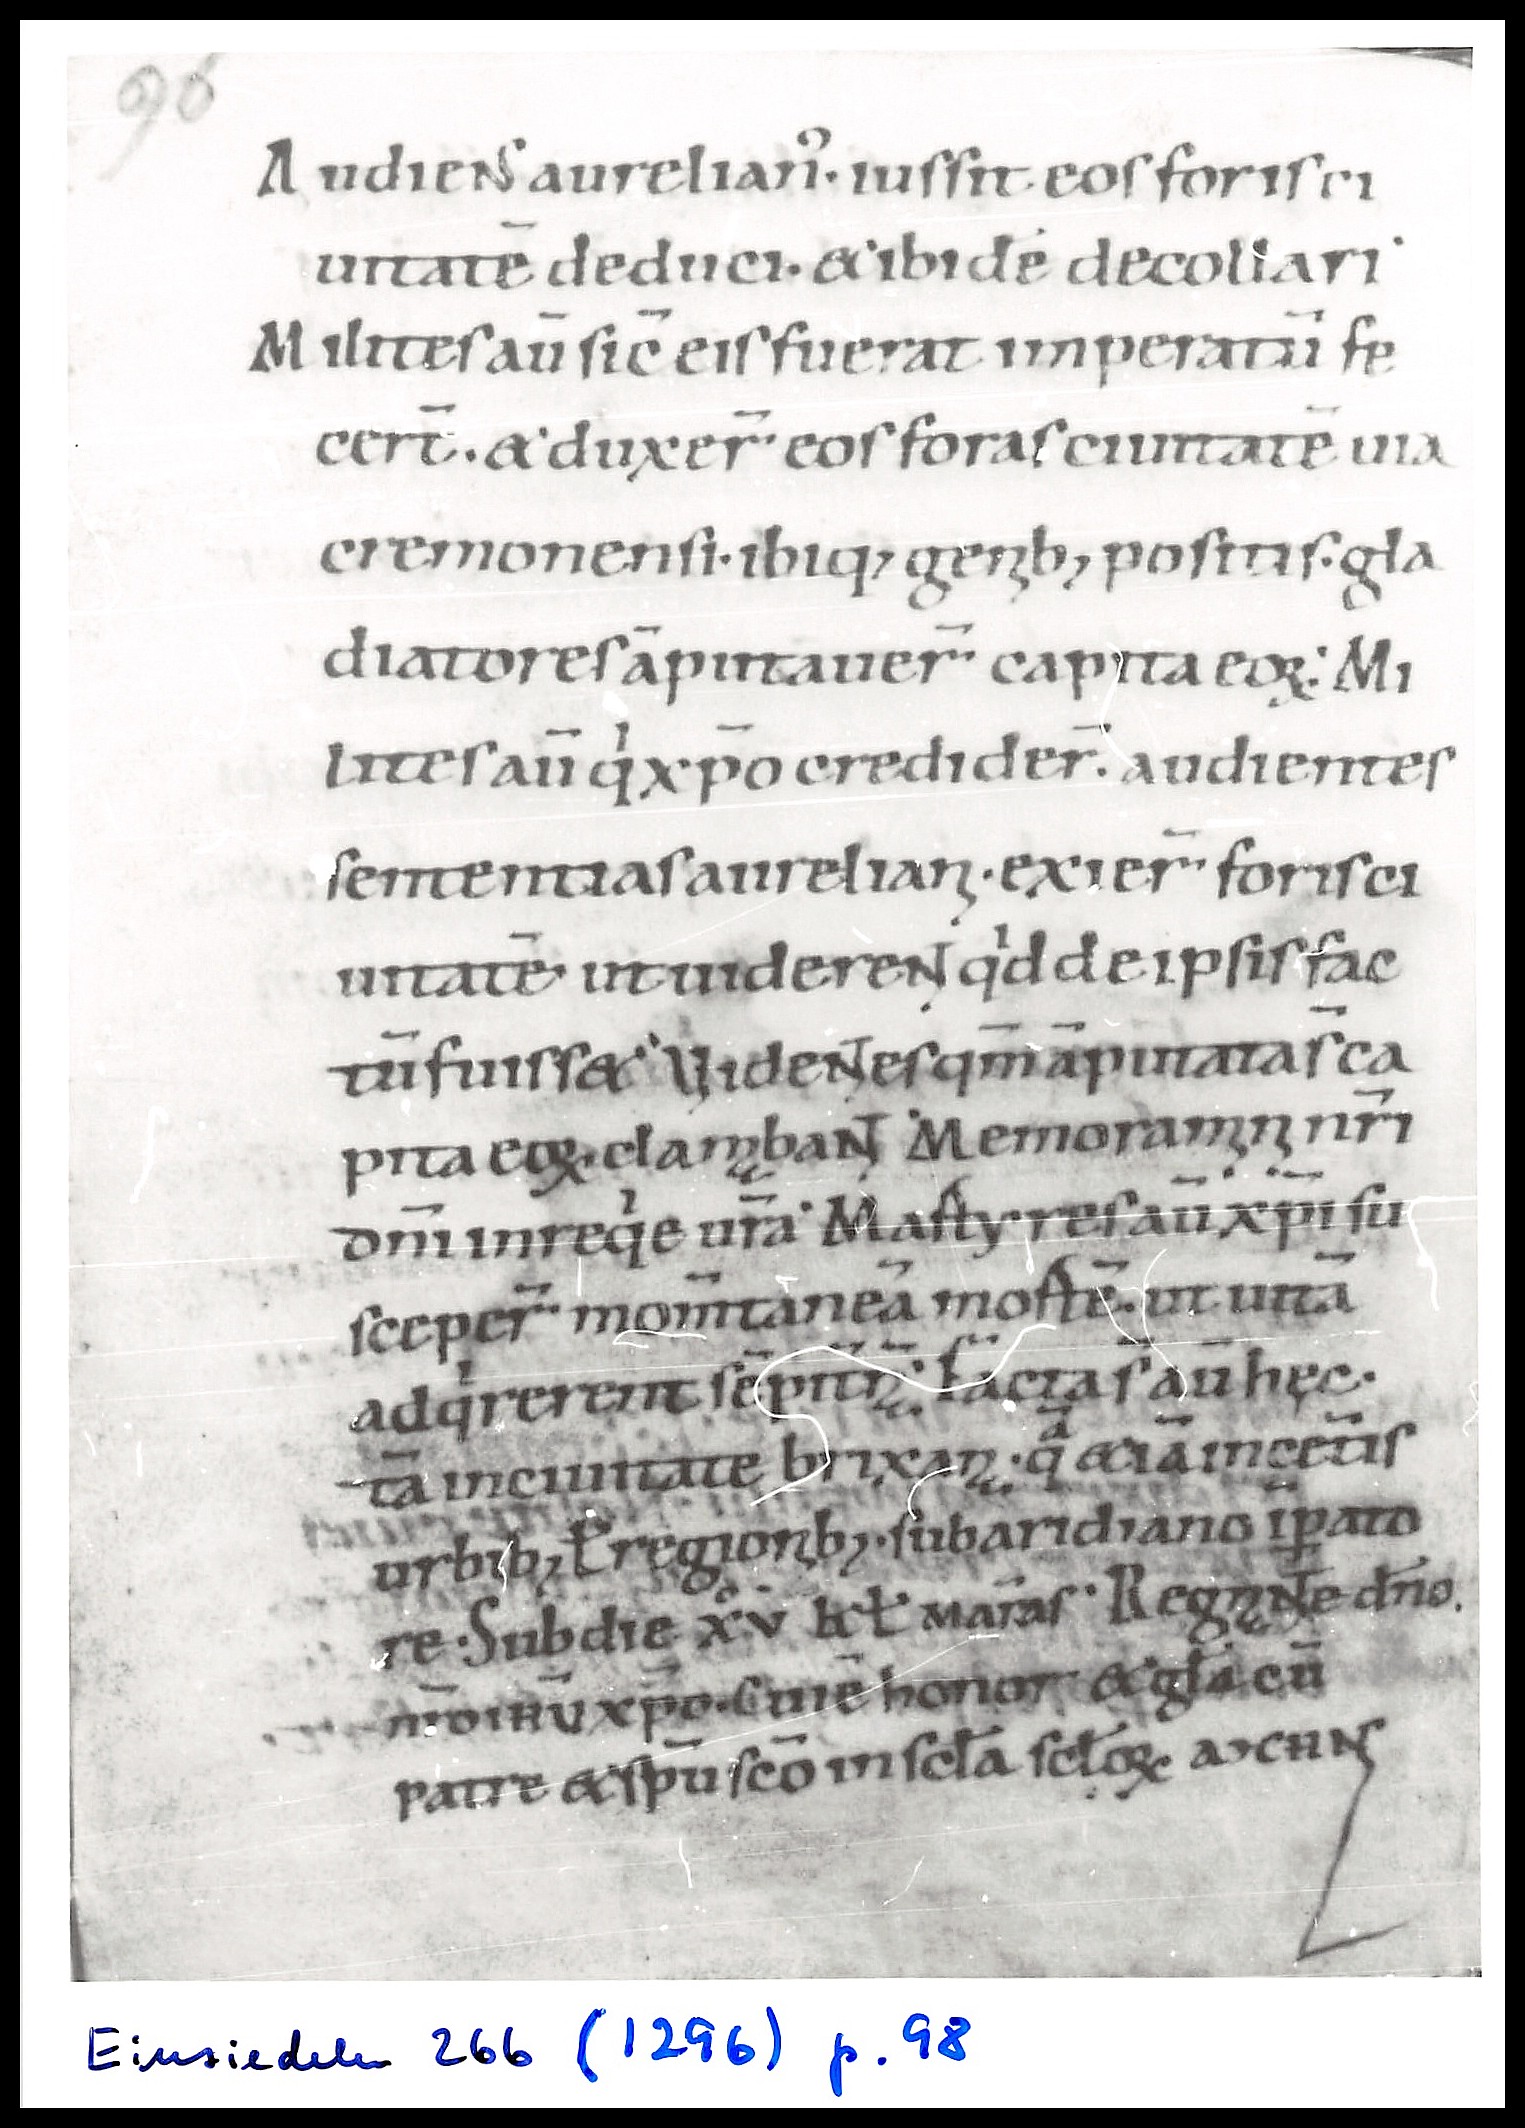 96
AudieNS aurelian᾿· iussit eos foris ci
uitatē deduci· & ibidē decollari·
Milites aū sic̄ eis fuerat imperatū fe
cert̄· & duxer̄ eos foras ciuitatē uia
cremonensi· ibiq; genib; positis· gla
diatores āputauer̄ capita eoꝝ· Mi
lites aū qi xp̄o credider̄· audientes
sententias aureliani· exier̄ foris ci
uitatē ut uiderent qid de ipsis fac
tū fuiss&· Videntes qm̄ āputatas̄ ca
pita eoꝝ· clamabant Memoramini nr̄i
dn̄i in reqie ur̄a· Martyres aū xp̄i su
sceper̄ mom̄taneā mortē· ut uitā
adqirerent sēpit̄n̄· Facta s̄ aū hęc·
tā in ciuitate brixana· qa &iā in cet̄is
urbib; ł regionib;· sub aridiano īpato
re· Sub die xv kł mar̄as· Regnante dn̄o·
nr̄o ihū xp̄o· Cui ē honor & gła cū
patre & sp̄u sc̄o in scła scłoꝝ aμεΗΝ
Einsiedeln 266 (1296) p. 98